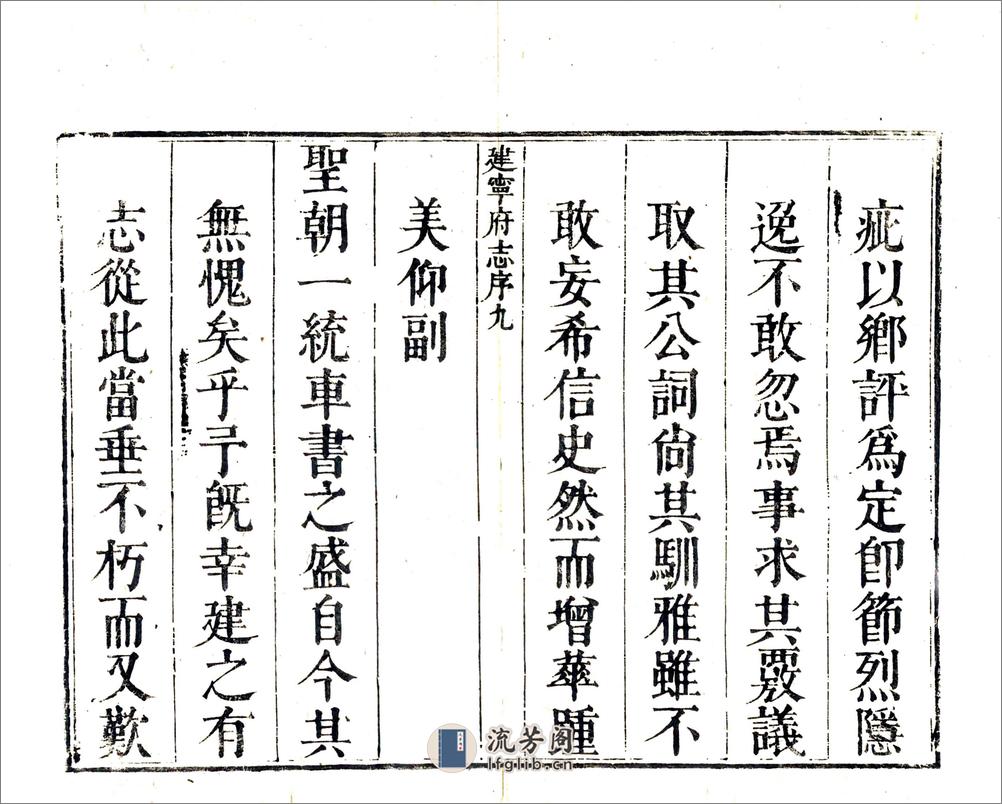 疵以鄉評爲定卽節烈隱
逸不敢忽焉事求其覈議
取其公詞尙其馴雅雖不
敢妄希信史然而增華踵
建寧府志序九
美仰副
聖朝一統車書之盛自今其
無愧矣乎予旣幸建之有
志從此當垂不朽而又歎
流芳阁
lfglib.cn